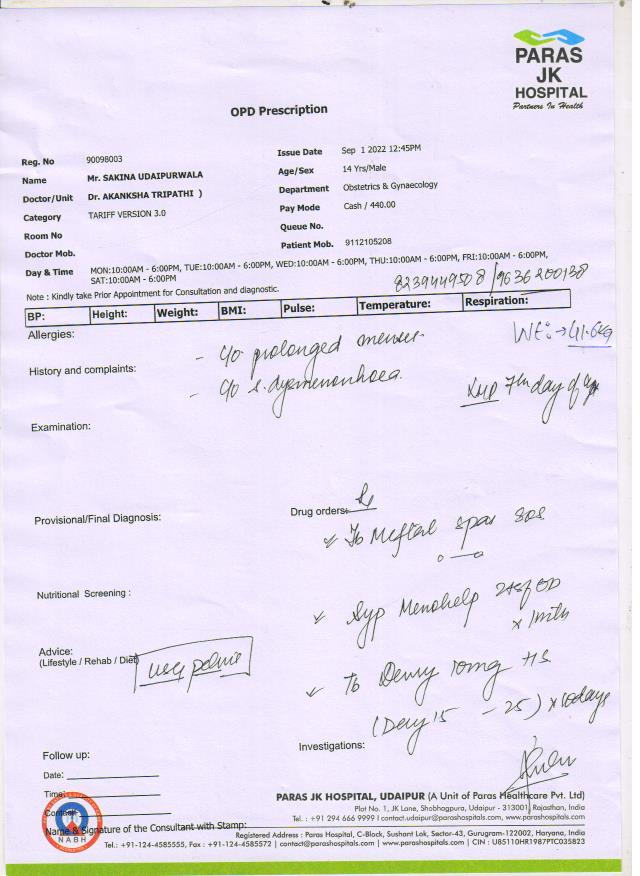 PARAS
JK
HOSPITAL
Partners In Health
OPD Prescription
Reg. No 90098003
Issue Date Sep 1 2022 12:45PM
Name Mr. SAKINA UDAIPURWALA
Age/Sex 14 Yrs/Male
Doctor/Unit Dr. AKANKSHA TRIPATHI )
Department Obstetrics & Gynaecology
Category TARIFF VERSION 3.0
Pay Mode Cash / 440.00
Room No
Queue No.
Doctor Mob.
Patient Mob. 9112105208
Day & Time MON:10:00AM - 6:00PM, TUE:10:00AM - 6:00PM, WED:10:00AM - 6:00PM, THU:10:00AM - 6:00PM, FRI:10:00AM - 6:00PM,
SAT:10:00AM - 6:00PM
8239449508 / 9636200138
Note : Kindly take Prior Appointment for Consultation and diagnostic.
BP: Height: Weight: BMI: Pulse: Temperature: Respiration:
Allergies:
Wt: → 41.6kg
- c/o prolonged menses
History and complaints:
- c/o s. dysmenorrhoea.
LMP 7th day of
Examination:
Drug orders: Rx
Provisional/Final Diagnosis:
✓ Tb Meftal spas sos
o — o
Nutritional Screening :
✓ Syp Menohelp 2tsf OD
x 1mth
Advice:
(Lifestyle / Rehab / Diet)
USG pelvis
✓ Tb 10mg HS
(Day 15 - 25) x 10days
Investigations:
Follow up:
Date:
Time:
Contact:
NABH
Name & Signature of the Consultant with Stamp:
PARAS JK HOSPITAL, UDAIPUR (A Unit of Paras Healthcare Pvt. Ltd)
Plot No. 1, JK Lane, Shobhagpura, Udaipur - 313001, Rajasthan, India
Tel. : +91 294 666 9999 | contact.udaipur@parashospitals.com, www.parashospitals.com
Registered Address : Paras Hospital, C-Block, Sushant Lok, Sector-43, Gurugram-122002, Haryana, India
Tel.: +91-124-4585555, Fax : +91-124-4585572 | contact@parashospitals.com | www.parashospitals.com | CIN : U85110HR1987PTC035823